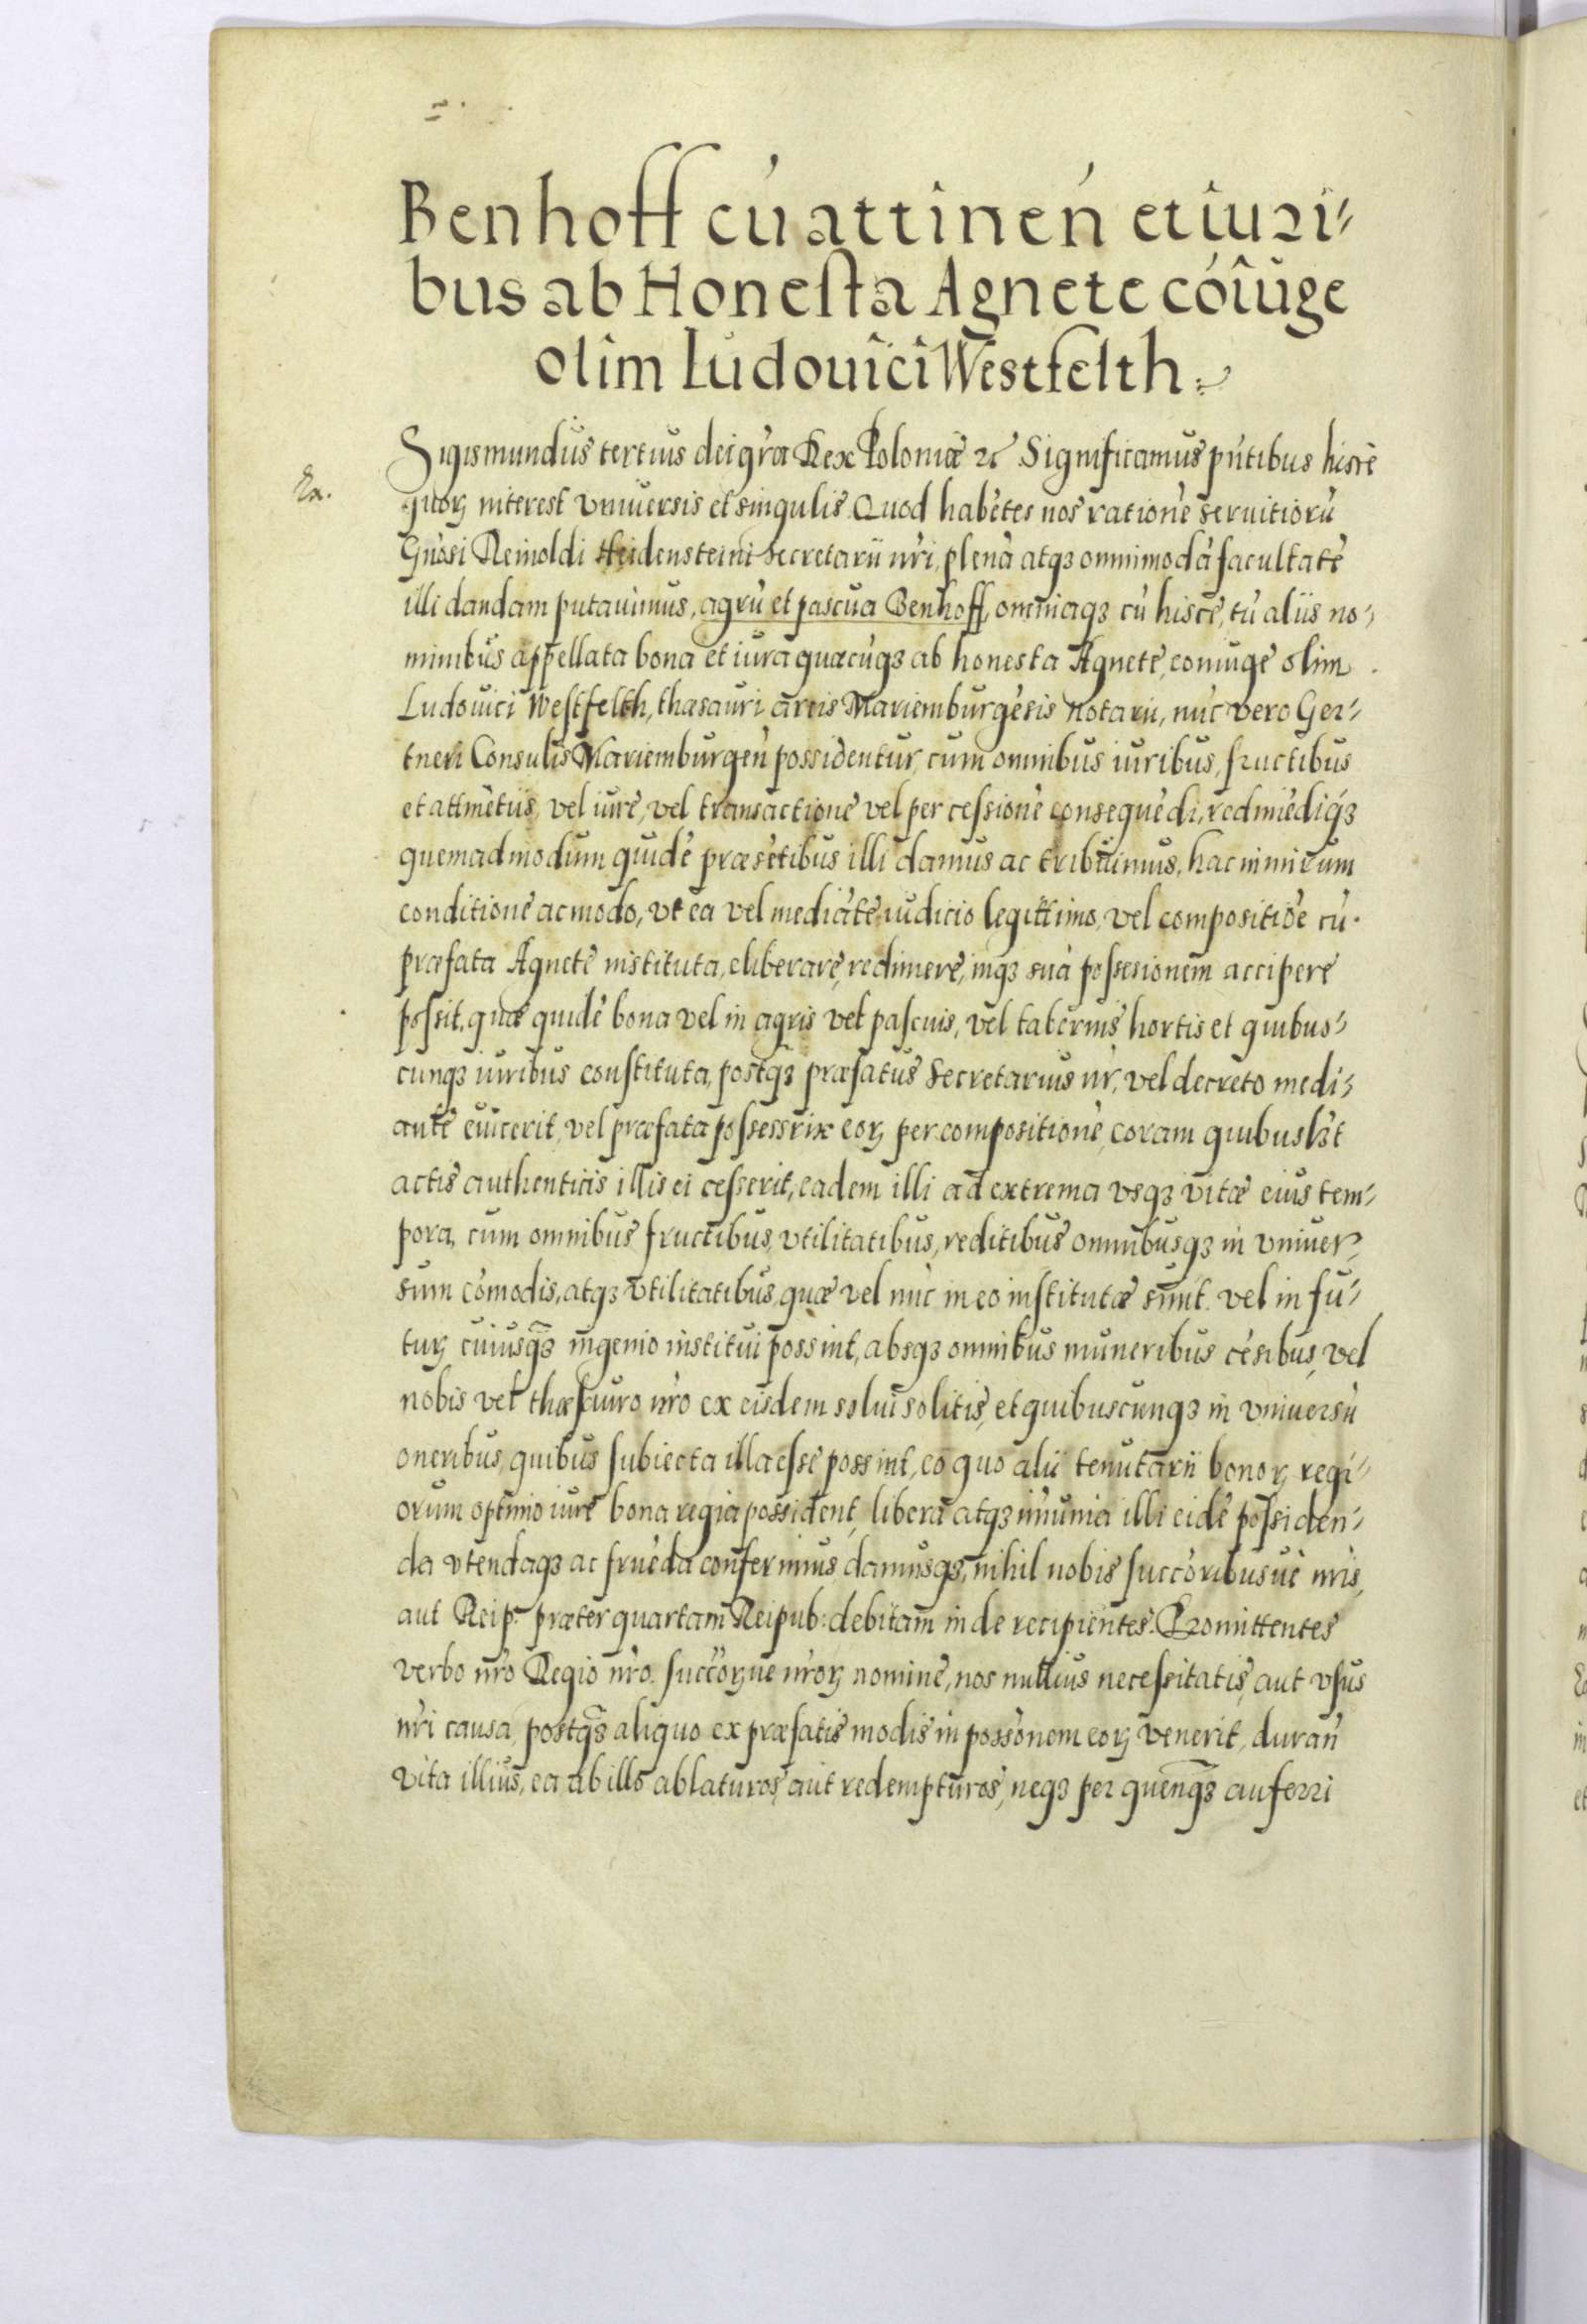 Benhoff cu̍ attinen̍ et iuri⸗
bus ab Honesta Agnete co̍iuge
olim Ludouici Westfelth.
Sigismundus tertius dei gr̍a Rex Poloniæ ꝛc Significamus pn̍tibus hisce
quoꝝ interest vniuersis et singulis. Quod habe̍tes nos ratione̍ seruitioru̍
Gn̍osi Reinoldi Heidensteini secretarii nr̍i, plena̍ atqꝫ omnimoda̍ facultate̍
illi dandam putauimus, agru̍ et pascua Benhoff, omniaqꝫ cu̍ hisce, tu̍ aliis no⸗
minibus appellata bona et iura quæcu̍qꝫ ab honesta Agnete, coniuge olim
Ludouici Westfelth, thæsauri arcis Mariemburge̍sis Notarii, nu̍c vero Ger⸗
tneri Consulis Mariemburgen̍ possidentur, cum omnibus iuribus, fructibus
et attine̍tiis, vel iure, vel transactione vel per cessione̍ conseque̍di, redimie̍diqꝫ
quemadmodum quide̍ præse̍tibus illi damus ac tribuimus, hac nimirum
conditione ac modo, vt ea vel media̍te iudicio legittimo, vel compositio̍e cu̍
præfata Agnete instituta, eliberare, redimere, inqꝫ sua̍ possesionem accipere
possit, quæ quide̍ bona vel in agris vel pascuis, vel tabernis hortis et quibus⸗
cunqꝫ iuribus constituta, postqꝫ præfatus Secretarius nr̍, vel decreto medi⸗
ante euicerit, vel præfata possessrix eoꝝ per compositione̍, coram quibuslꝫt
actis authenticis illis ei cesserit, eadem illi ad extrema vsqꝫ vitæ eius tem⸗
pora, cum omnibus fructibus, vtilitatibus, reditibus omnibusqꝫ in vniuer⸗
sum co̍modis, atqꝫ vtilitatibus, quæ vel nu̍c in eo institutæ sunt. vel in fu⸗
tuꝝ cuiusqꝫ ingenio institui possint, absqꝫ omnibus muneribus ce̍sibus, vel
nobis vel thæsauro nr̍o ex eisdem solui solitis, et quibuscunqꝫ in vniuersu̍
oneribus, quibus subiecta illa esse possint, eo quo alii tenutarii bonoꝝ regi⸗
orum optimo iure bona regia possident, libera atqꝫ im̍unia illi eide̍ possiden⸗
da vtendaqꝫ ac frue̍da conferimus, damusqꝫ, nihil nobis succo̍ribusue̍ nr̍is,
aut Reip. præter quartam Reipub: debitam inde recipientes. Promittentes
verbo nr̍o Regio nr̍o. succo̍ꝝue nr̍oꝝ nomine, nos nullius necessitatis, aut vsus
nr̍i causa, postqꝫ aliquo ex præfatis modis in posso̍nem eoꝝ venerit, duran̍
vita illius, ea ab illo ablaturos, aut redempturos, neqꝫ per quenqꝫ auferri